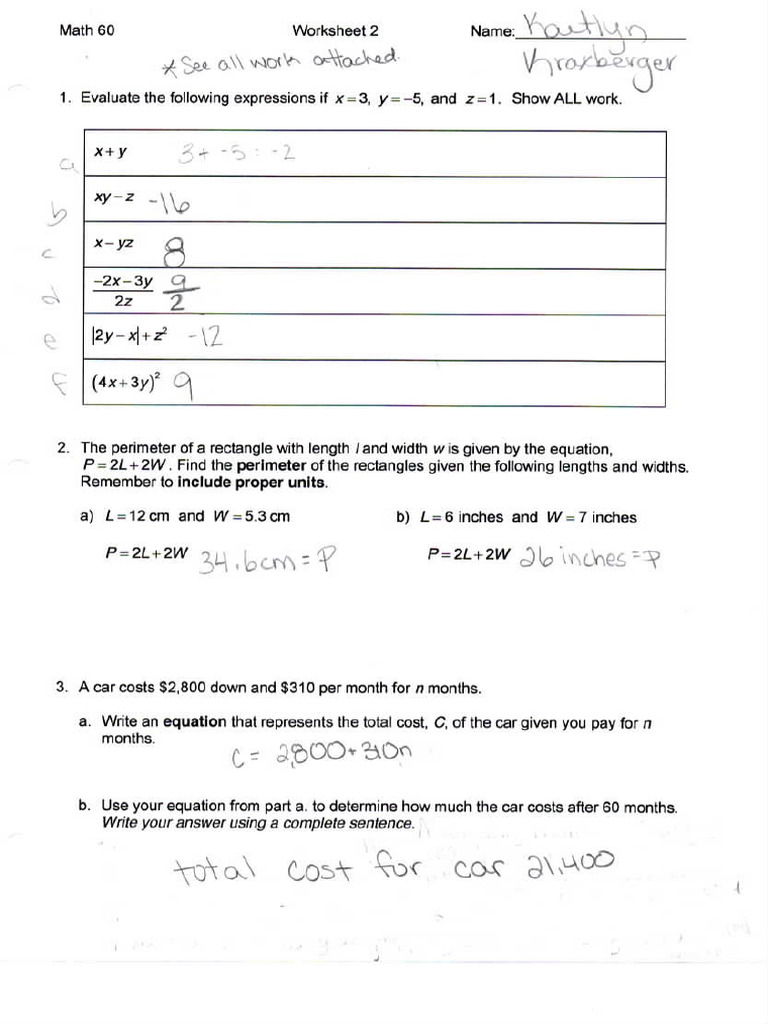 Math 60 Worksheet 2 Name: Kaitlyn
*See all work attached. Kraxberger
1. Evaluate the following expressions if x=3, y=−5, and z=1. Show ALL work.
a x+y 3+ -5 = -2
b xy−z -16
c x−yz 8
d −2x−3y/2z 9/2
e |2y−x|+z² -12
f (4x+3y)² 9
2. The perimeter of a rectangle with length l and width w is given by the equation,
P=2L+2W. Find the perimeter of the rectangles given the following lengths and widths.
Remember to include proper units.
a) L=12 cm and W=5.3 cm b) L=6 inches and W=7 inches
P=2L+2W 34.6cm=P P=2L+2W 26 inches=P
3. A car costs $2,800 down and $310 per month for n months.
a. Write an equation that represents the total cost, C, of the car given you pay for n
months.
C= 2,800+310n
b. Use your equation from part a. to determine how much the car costs after 60 months.
Write your answer using a complete sentence.
total cost for car 21,400